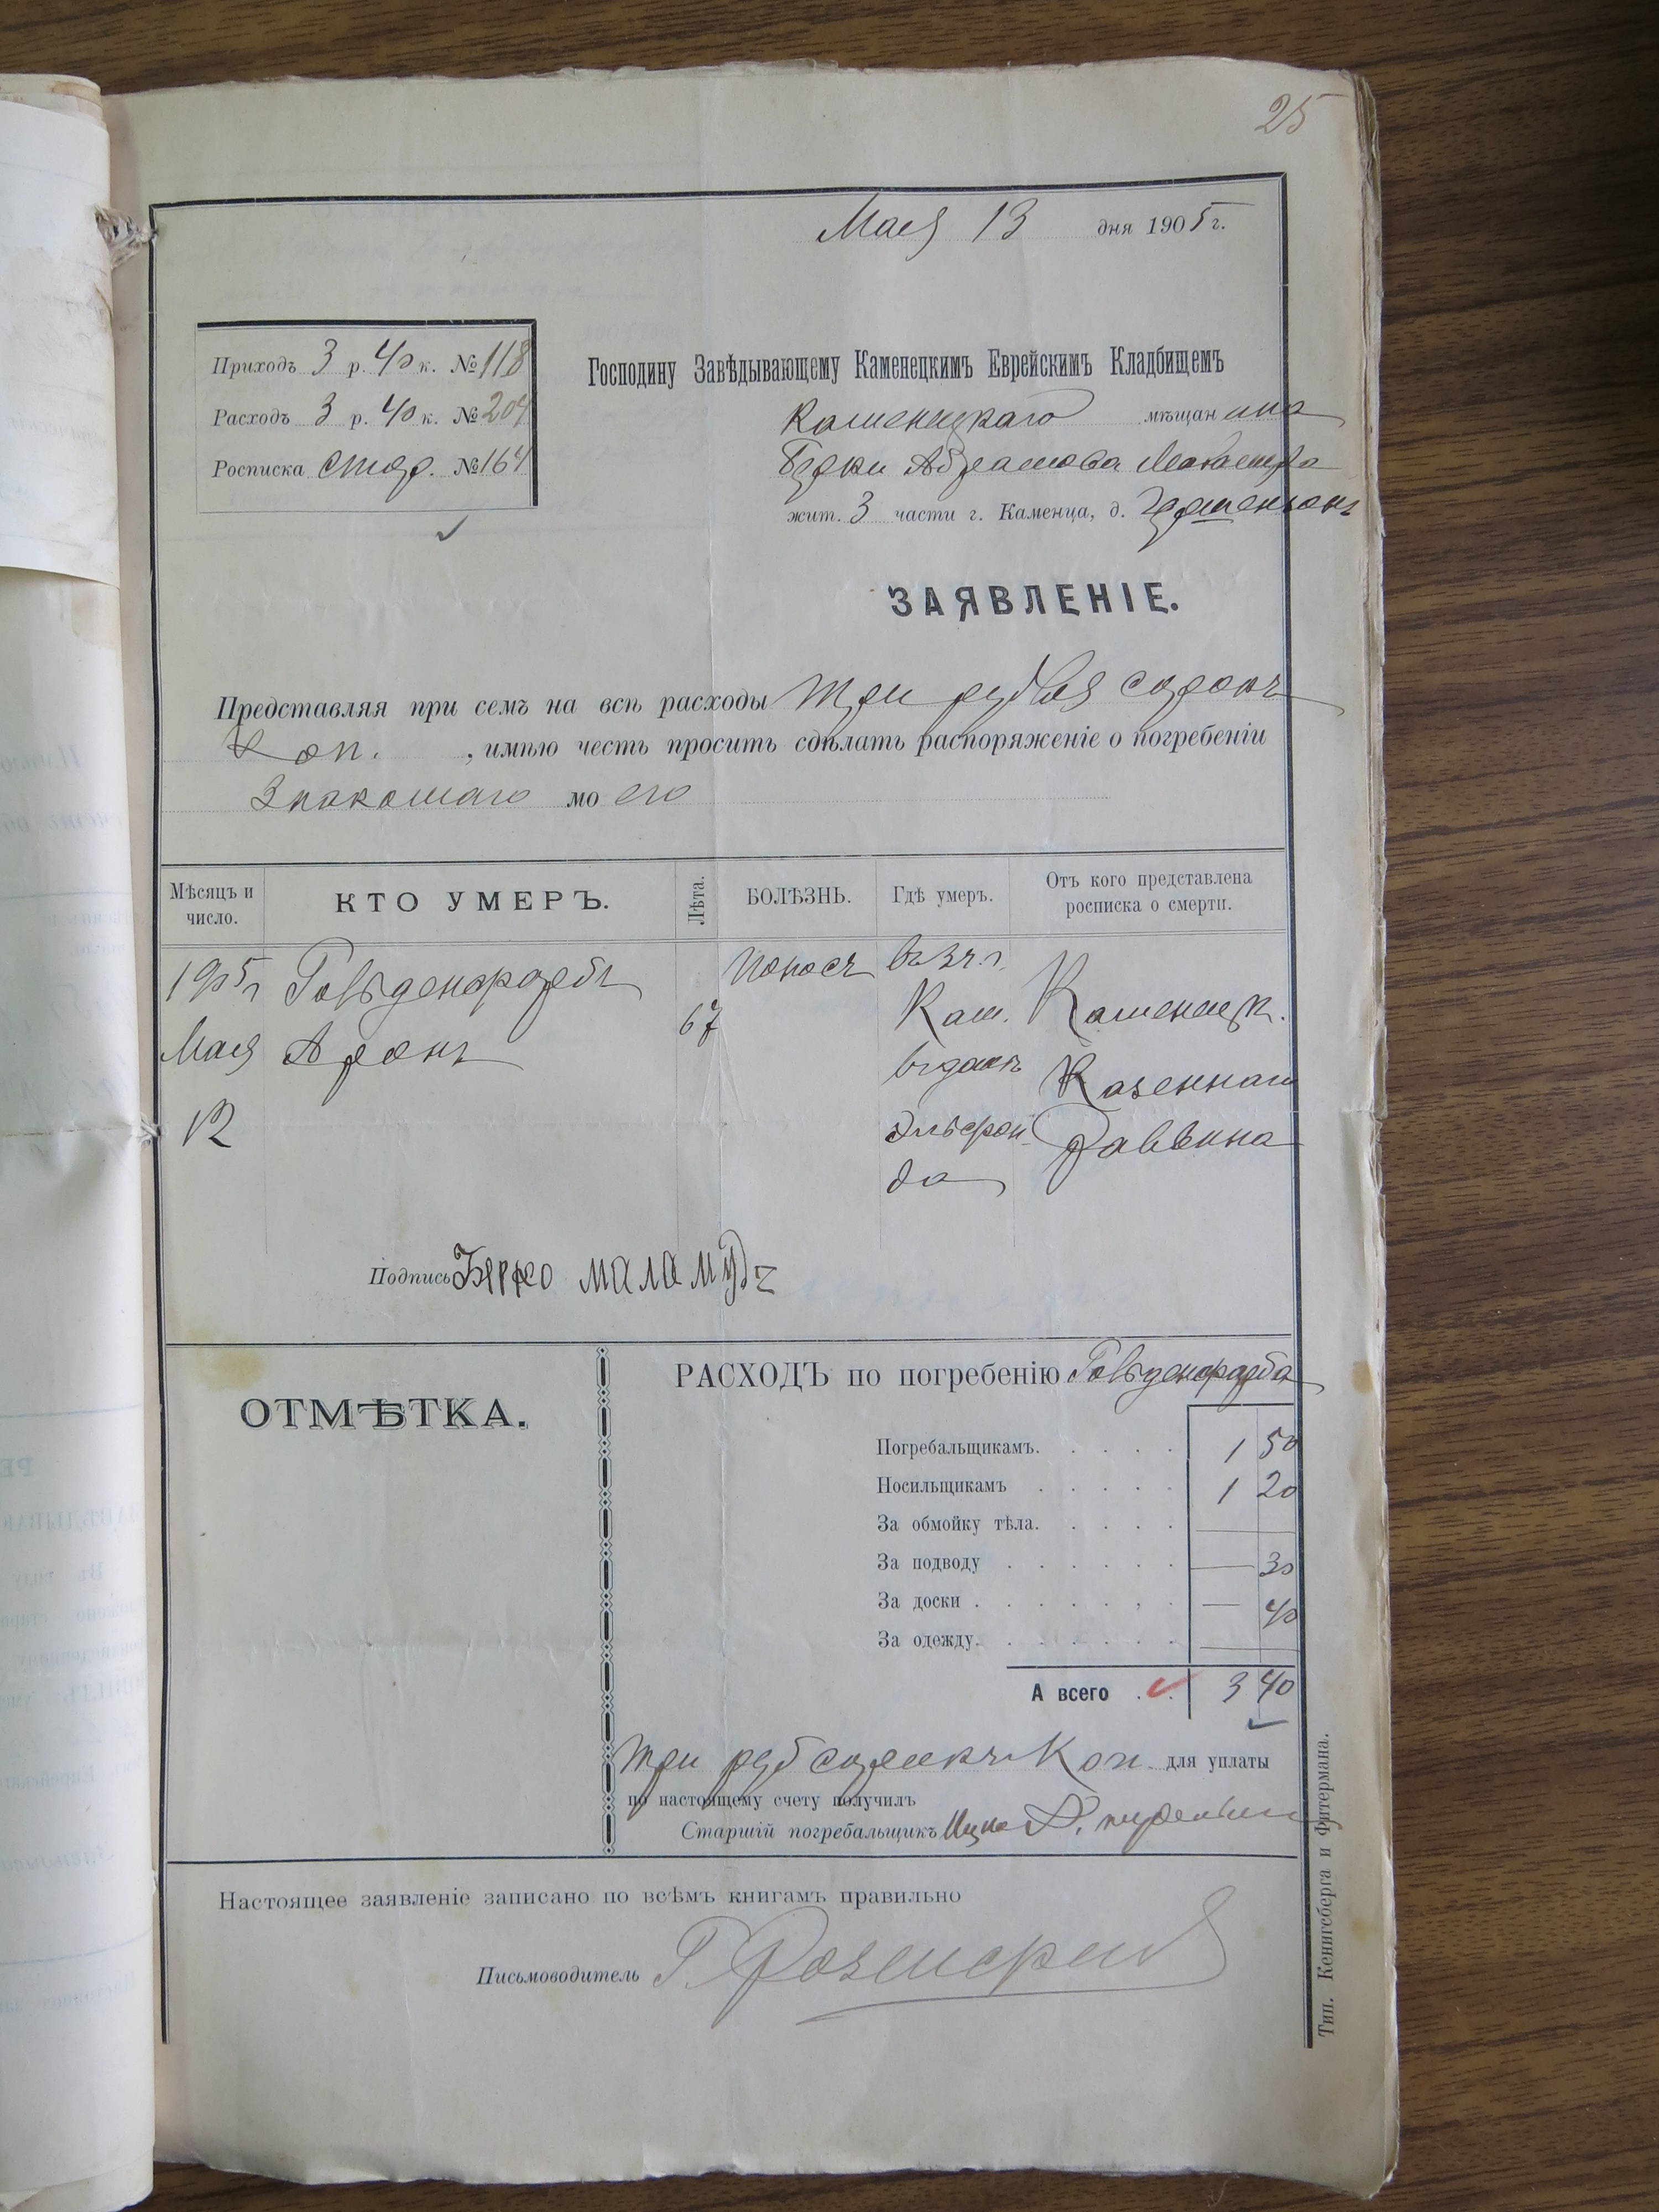 25
Мая 13 дня 1905 г.
Приходъ 3 р. 40 к. № 118
Расходъ 3 р. 40 к. № 204
Росписка стар. № 164
Господину Завѣдывающему Каменецкимъ Еврейскимъ Кладбищемъ
Каменецкаго мѣщанина
Берки Абрамова
жит. 3 части г. Каменца, д.
ЗАЯВЛЕНІЕ.
Представляя при семъ на всѣ расходы Три рубля сорокъ
коп. , имѣю честь просить сдѣлать распоряженіе о погребеніи
Знакомаго моего
Мѣсяцъ и число.
КТО УМЕРЪ.
Лѣта.
БОЛѢЗНЬ.
Гдѣ умеръ.
Отъ кого представлена росписка о смерти.
1905 г Гольденфарбъ Поносъ
67 Кам. Каменецк.
Мая Аронъ въ домѣ Казеннаго
12 Раввина
Подпись Берко маламудъ
ОТМѢТКА.
РАСХОДЪ по погребенію Гольденфарба
Погребальщикамъ. . . . . 1 50
Носильщикамъ . . . . . 1 20
За обмойку тѣла. . . . . —
За подводу . . . . . . — 30
За доски . . . . . . . — 40
За одежду. . . . . . . —
А всего . . 3 40
Три руб сорокъ Коп. для уплаты
по настоящему счету получилъ
Старшій погребальщикъ Ицко
Настоящее заявленіе записано по всѣмъ книгамъ правильно
Письмоводитель Г.
Тип. Кенигсберга и Фитермана.